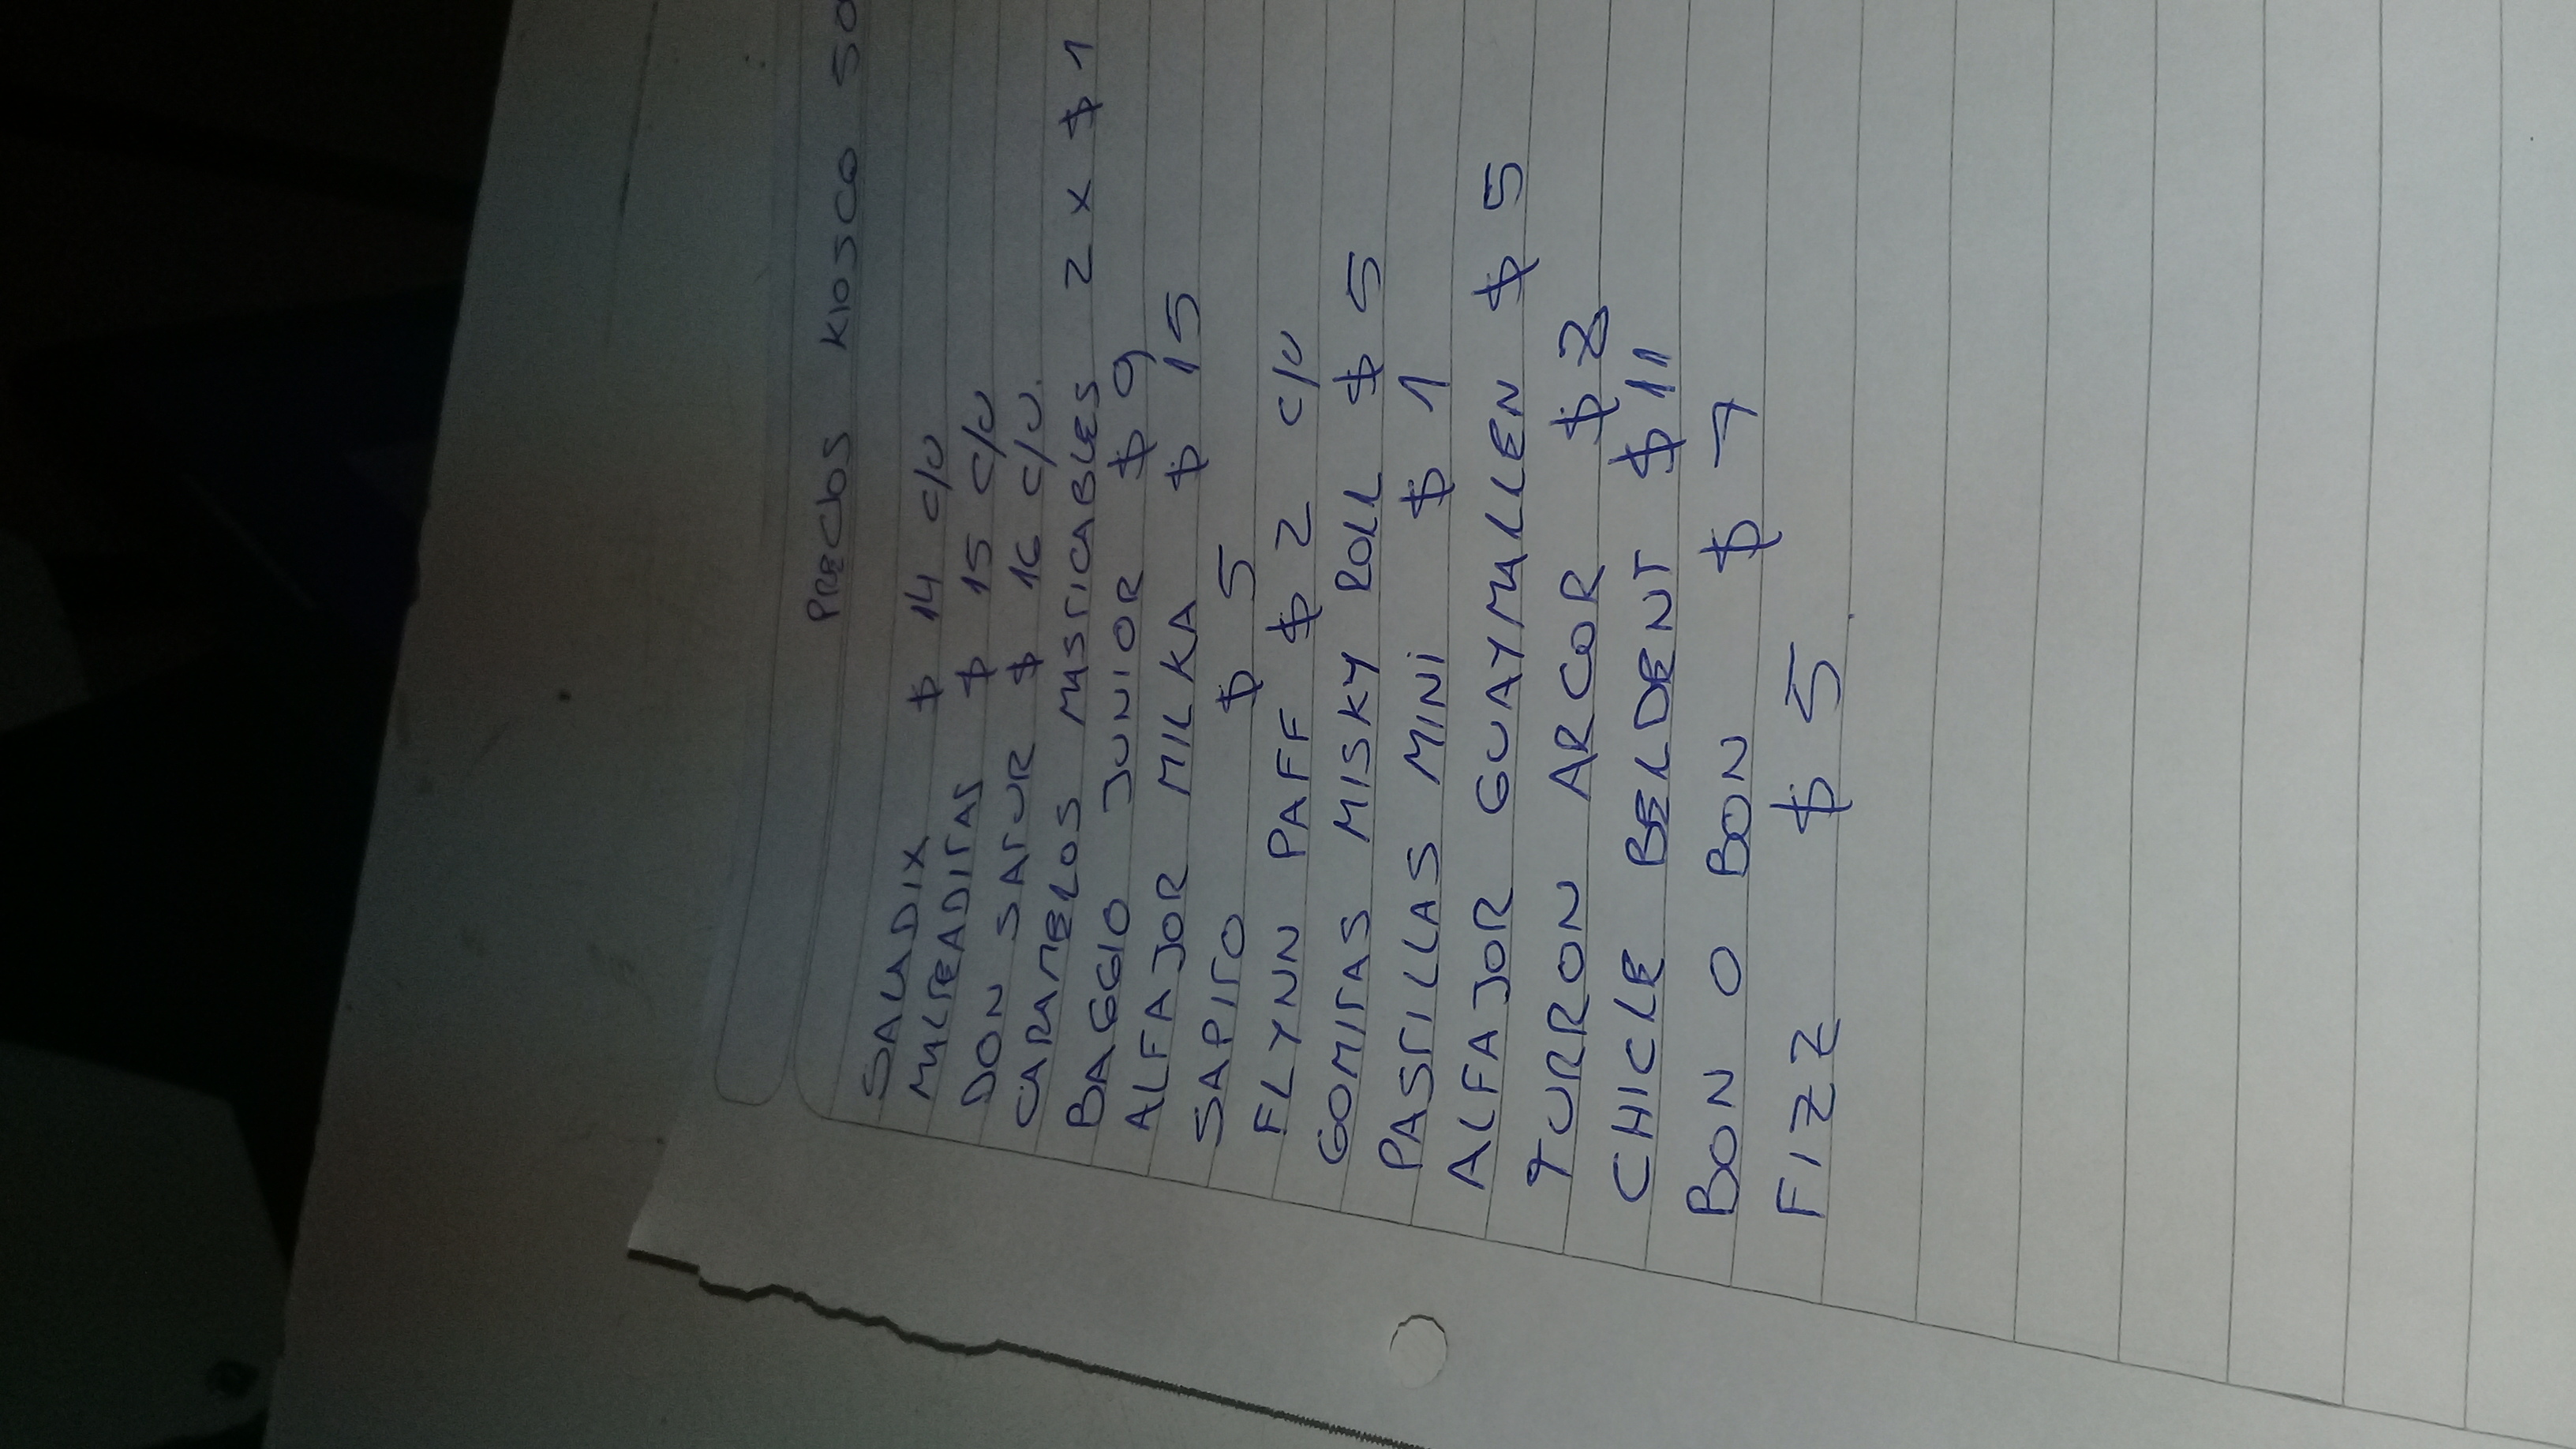 PRECIOS KIOSCO
SALADIX $ 14 c/u
MALTEADITAS $ 15 c/u
DON SATUR $ 16 c/u.
CARAMELOS MASTICABLES 2 x $ 1
BAGGIO JUNIOR $ 9
ALFAJOR MILKA $ 15
SAPITO $ 5
FLYNN PAFF $ 2 c/u
GOMITAS MISKY ROLL $ 5
PASTILLAS MINI $ 1
ALFAJOR GUAYMALLEN $ 5
TURRON ARCOR $ 2
CHICLE BELDENT $ 11
BON O BON $ 7
FIZZ $ 5